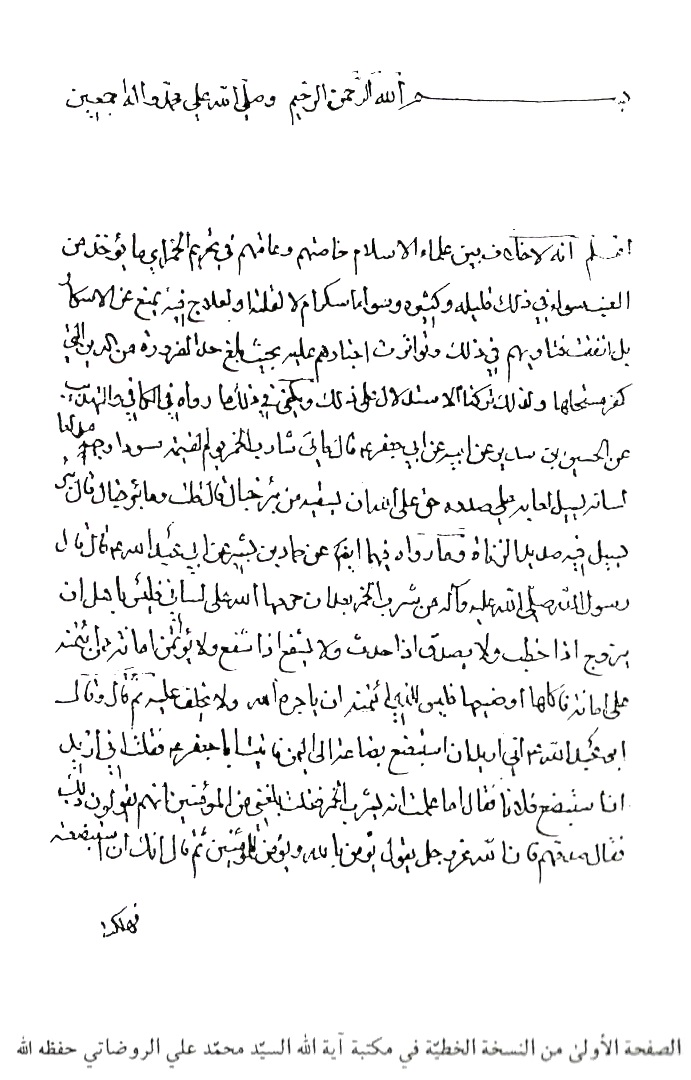 بسم الله الرحمن الرحيم وصلى الله على محمد واله اجمعين
اعلم انه لا خلاف بين علماء الاسلام خاصتهم وعامتهم في تحريم الخمر اي ما يؤخذ من
العنب سواء في ذلك قليله وكثيره وسواء اسكر ام لا لقلته او لعلاج فيه يمنع عن الاسكار
بل اتفقت فتاويهم في ذلك وتواترت اخبارهم عليه بحيث بلغ حد الضرورة من الدين التي
كفر مستحلها ولذلك تركنا الاستدلال على ذلك ويكفي في ذلك ما رواه في الكافي والتهذيب
عن الحسين بن سدير عن ابيه عن ابي جعفر ع قال ياتي شارب الخمر يوم القيمة مسودا وجهه مدلعا
لسانه يسيل لعابه على صدره حق على الله ان يسقيه من بئر خبال قال قلت وما بئر خبال قال بئر
يسيل فيه صديد الزناة وما رواه فيهما ايضا عن حماد بن بشير عن ابي عبد الله ع قال قال
رسول الله صلى الله عليه وآله من شرب الخمر بعد ان حرمها الله على لساني فليس باهل ان
يزوج اذا خطب ولا يصدق اذا حدث ولا يشفع اذا شفع ولا يؤتمن على امانة فمن ائتمنه
على امانة فاكلها او ضيعها فليس للذي ائتمنه ان ياجره الله ولا يخلف عليه ثم قال وقال
ابو عبد الله ع اني اريد ان استبضع بضاعة الى اليمن فاتيت ابا جعفر ع فقلت اني اريد
ان استبضع فلانا فقال اما علمت انه يشرب الخمر فقلت بلغني من المؤمنين انهم يقولون ذلك
فقال صدقهم فان الله عز وجل يقول يؤمن بالله ويؤمن للمؤمنين ثم قال انك ان استبضعته
فهلكت
الصفحة الأولىٰ من النسخة الخطيّة في مكتبة آية الله السيّد محمّد علي الروضاتي حفظه الله